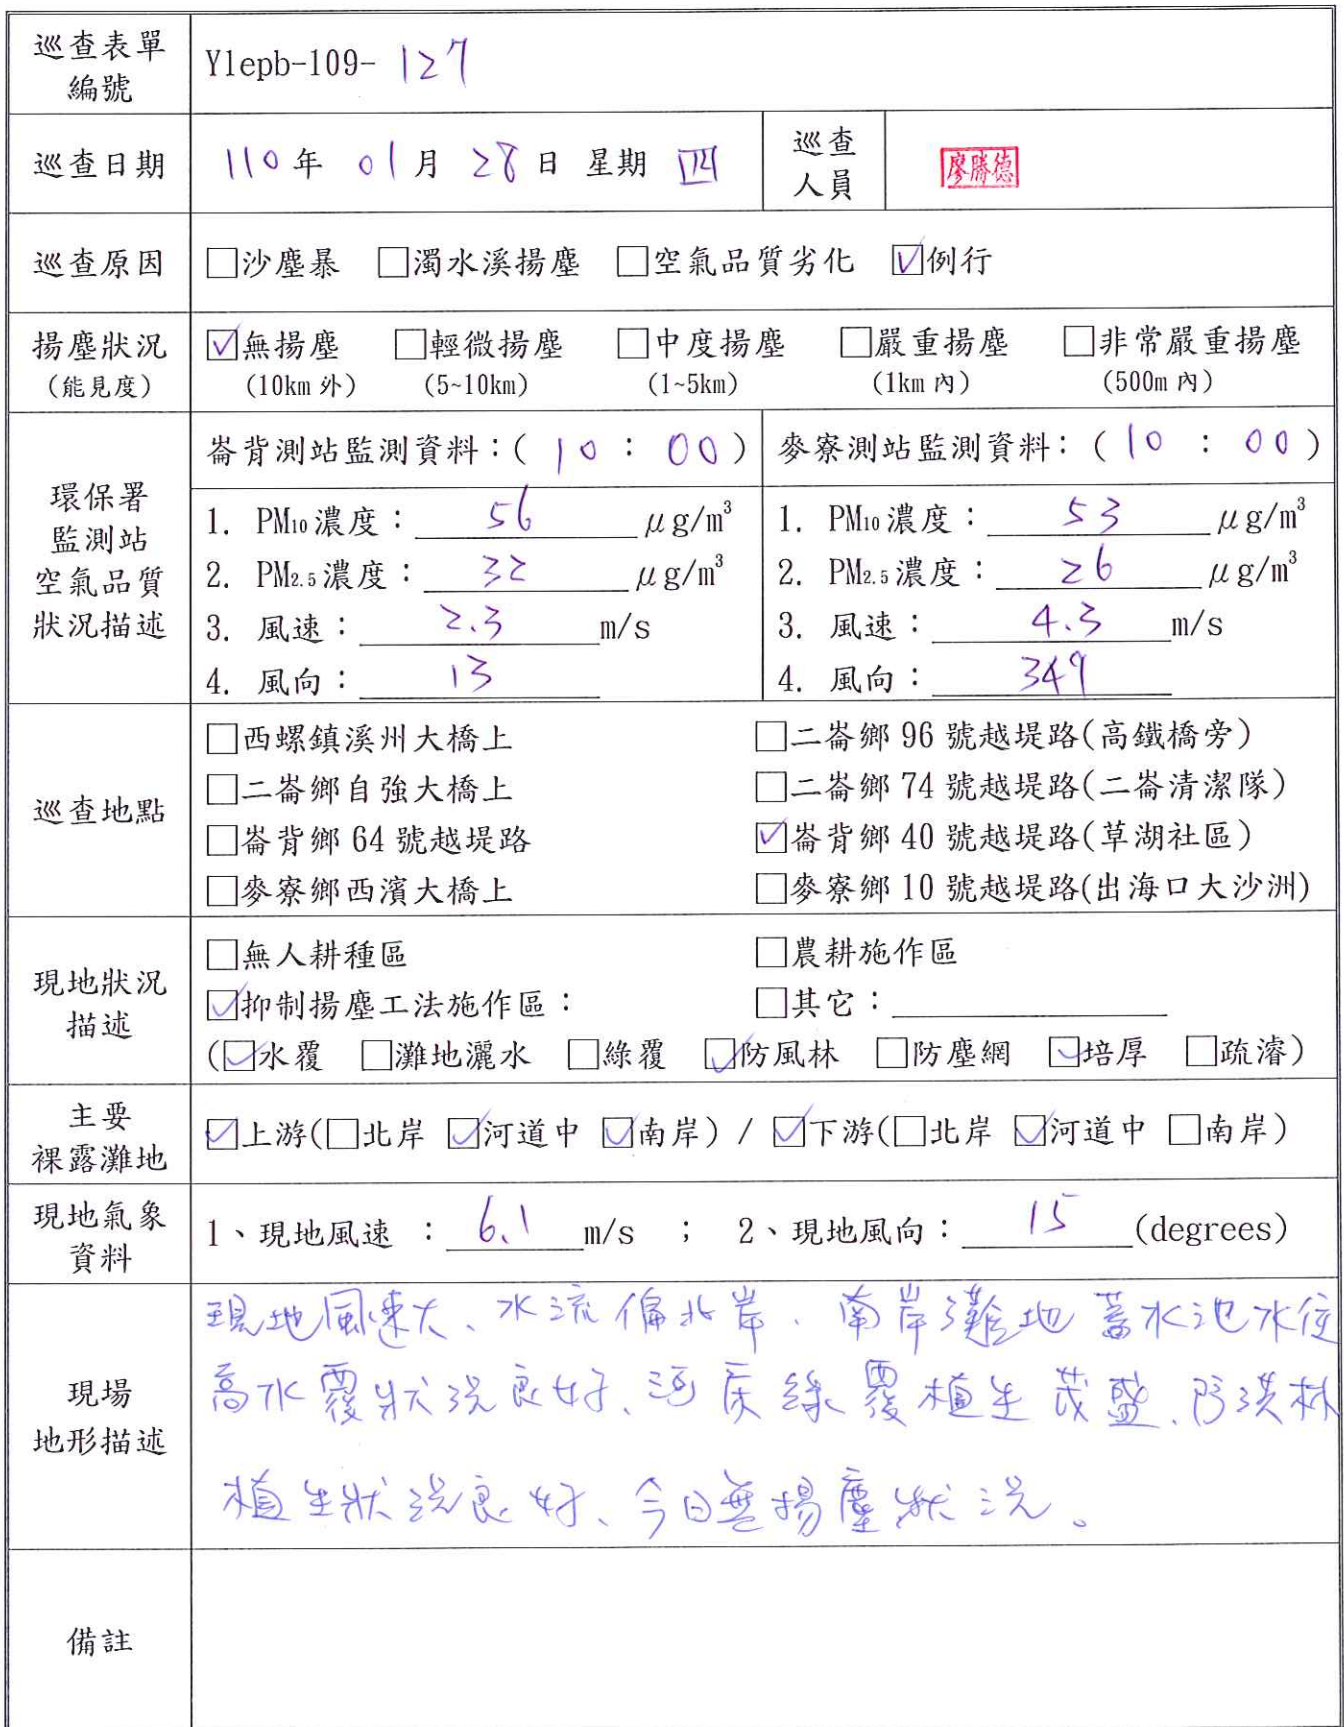 巡查表單
編號
Ylepb-109- 127
巡查日期
110年 01月 28日 星期 四
巡查
人員
廖勝德
巡查原因
□沙塵暴 □濁水溪揚塵 □空氣品質劣化 ☑例行
揚塵狀況
(能見度)
☑無揚塵 □輕微揚塵 □中度揚塵 □嚴重揚塵 □非常嚴重揚塵
(10km 外) (5~10km) (1~5km) (1km 內) (500m 內)
環保署
監測站
空氣品質
狀況描述
崙背測站監測資料：( 10 : 00 )
1. PM10濃度：56 μg/m³
2. PM2.5濃度：32 μg/m³
3. 風速：2.3 m/s
4. 風向：13
麥寮測站監測資料：( 10 : 00 )
1. PM10濃度：53 μg/m³
2. PM2.5濃度：26 μg/m³
3. 風速：4.3 m/s
4. 風向：349
巡查地點
□西螺鎮溪州大橋上 □二崙鄉 96 號越堤路(高鐵橋旁)
□二崙鄉自強大橋上 □二崙鄉 74 號越堤路(二崙清潔隊)
□崙背鄉 64 號越堤路 ☑崙背鄉 40 號越堤路(草湖社區)
□麥寮鄉西濱大橋上 □麥寮鄉 10 號越堤路(出海口大沙洲)
現地狀況
描述
□無人耕種區 □農耕施作區
☑抑制揚塵工法施作區： □其它：
(☑水覆 □灘地灑水 □綠覆 ☑防風林 □防塵網 ☑培厚 □疏濬)
主要
裸露灘地
☑上游(□北岸 ☑河道中 ☑南岸) / ☑下游(□北岸 ☑河道中 □南岸)
現地氣象
資料
1、現地風速 ：6.1 m/s ； 2、現地風向：15 (degrees)
現場
地形描述
現地風速大、水流偏北岸、南岸灘地蓄水池水位
高水覆狀況良好、河床綠覆植生茂盛、防洪林
植生狀況良好、今日無揚塵狀況。
備註